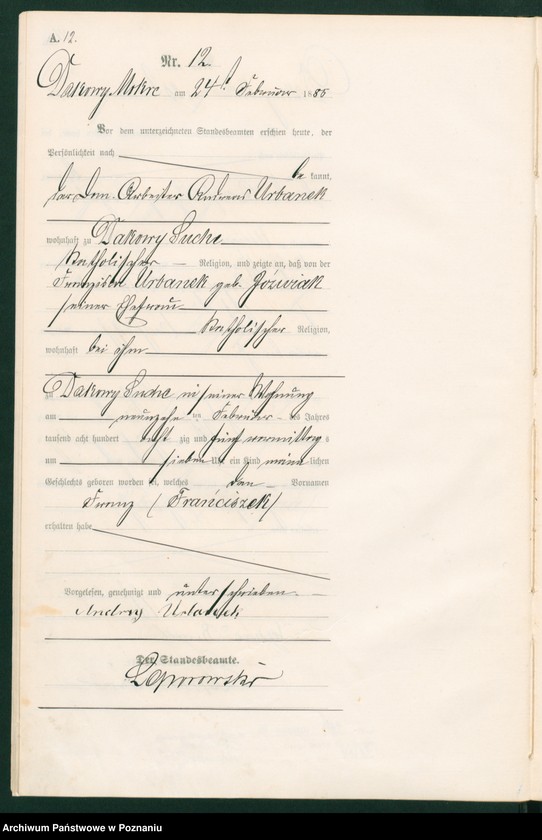 A. 12.
Nr. 12.
Dakowy Mokre am 24t Februar 1885
Vor dem unterzeichneten Standesbeamten erschien heute, der
Persönlichkeit nach
be kannt,
der Arbeiter Andreas Urbanek
wohnhaft zu Dakowy Suche
Katholischer Religion, und zeigte an, daß von der
Franziska Urbanek geb. Józwiak
seiner Ehefrau
Katholischer Religion,
wohnhaft bei ihm
zu Dakowy Suche in seiner Wohnung
am neunzehn ten Februar des Jahres
tausend acht hundert acht zig und fünf vormittag s
um sieben Uhr ein Kind männ lichen
Geschlechts geboren worden sei, welches den Vornamen
Franz (Franciszek)
erhalten habe
Vorgelesen, genehmigt und unterschrieben.
Andrzy Urbanek
Der Standesbeamte.
Archiwum Państwowe w Poznaniu